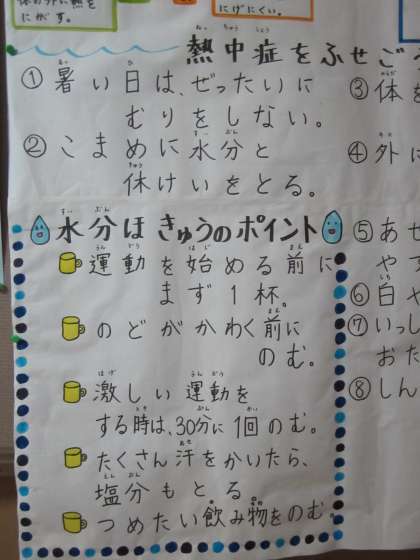 体の外に熱を
にがす。
にげにくい。
熱中症をふせごう
① 暑い日は、ぜったいに
むりをしない。
② こまめに水分と
休けいをとる。
③ 体を
④ 外に
水分ほきゅうのポイント
運動を始める前に
まず1杯。
のどがかわく前に
のむ。
激しい運動を
する時は、30分に1回のむ。
たくさん汗をかいたら、
塩分もとる。
つめたい飲み物をのむ。
⑤ あせ
やす
⑥ 白や
⑦ いっし
おた
⑧ しん